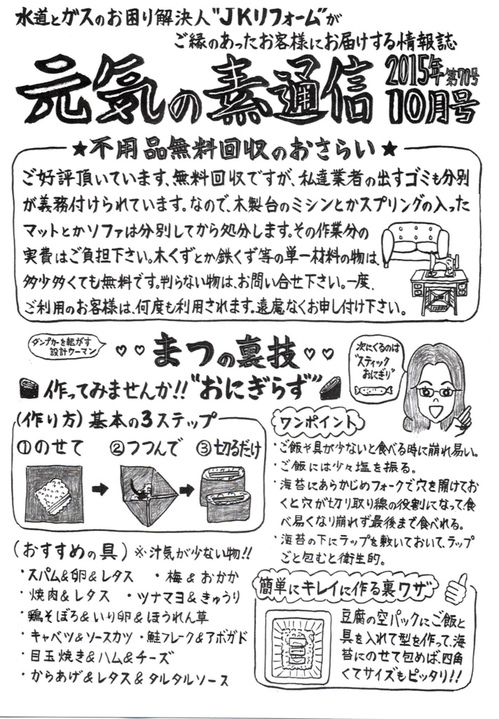 水道とガスのお困り解決人"JKリフォーム"が
ご縁のあったお客様にお届けする情報誌
元気の素通信
2015年 第70号
10月号
★不用品無料回収のおさらい★
ご好評頂いています、無料回収ですが、私達業者の出すゴミも分別
が義務付けられています。なので、木製台のミシンとかスプリングの入った
マットとかソファは分別してから処分します。その作業分の
実費はご負担下さい。木くずとか鉄くず等の単一材料の物は、
多少多くても無料です。判らない物は、お問い合せ下さい。一度、
ご利用のお客様は、何度も利用されます。遠慮なくお申し付け下さい。
ダンプカーを転がす
設計ウーマン
♡♡まつの裏技♡♡
次にくるのは
"スティック
おにぎり"
作ってみませんか!!"おにぎらず"
(作り方)基本の3ステップ
①のせて ②つつんで ③切るだけ
ワンポイント
・ご飯や具が少ないと食べる時に崩れ易い。
・ご飯には少々塩を振る。
・海苔にあらかじめフォークで穴を開けてお
くと穴が切り取り線の役割になって、食
べ易くなり崩れず最後まで食べれる。
・海苔の下にラップを敷いておいて、ラップ
ごと包むと衛生的。
(おすすめの具)※汁気が少ない物!!
・スパム&卵&レタス ・梅&おかか
・焼肉&レタス ・ツナマヨ&きゅうり
・鶏そぼろ&いり卵&ほうれん草
・キャベツ&ソースカツ ・鮭フレーク&アボガド
・目玉焼き&ハム&チーズ
・からあげ&レタス&タルタルソース
簡単にキレイに作る裏ワザ
豆腐の空パックにご飯と
具を入れて型を作って、海
苔にのせて包めば、四角
くてサイズもピッタリ!!